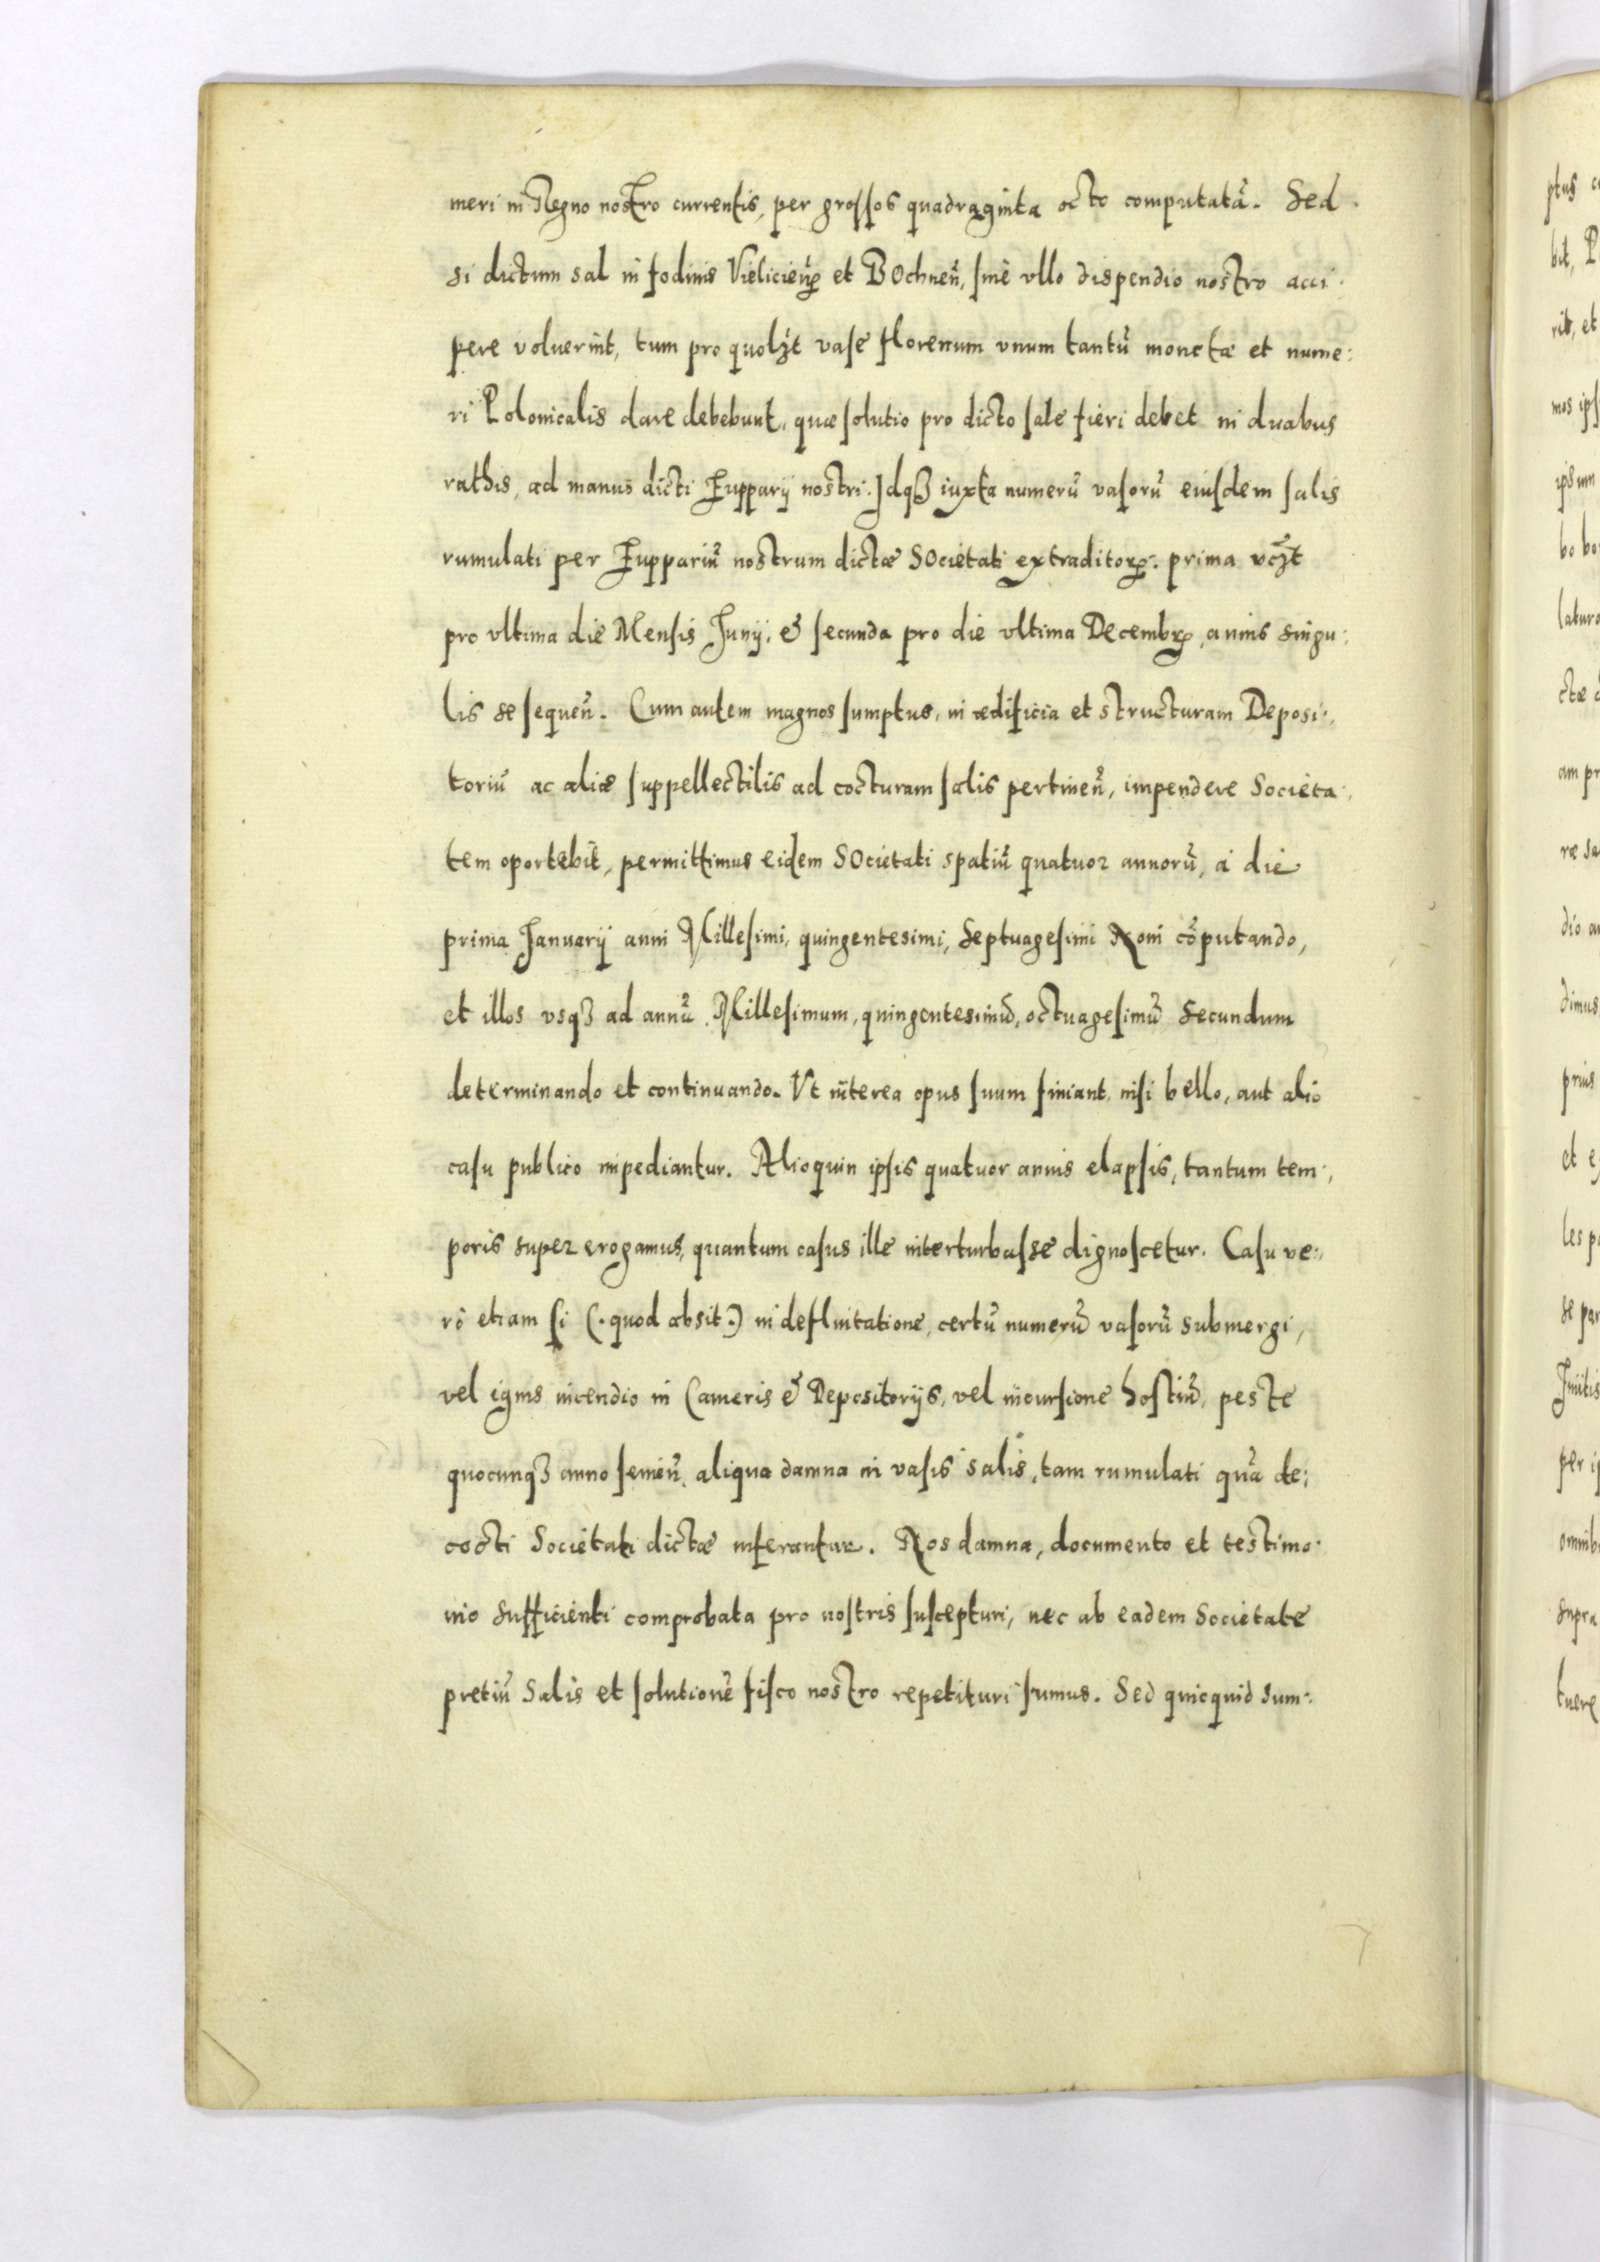 meri in Regno nostro currentis, per grossos quadraginta octo computatã. Sed
si dictum sal in fodinis Vielicieñ et BOchneñ, sine vllo dispendio nostro acci:
pere voluerint, tum pro quolzt vase florenum vnum tantũ monetæ et nume:
ri Polonicalis dare debebunt, quæ solutio pro dicto sale fieri debet in duabus
rathis, ad manus dicti Zupparij nostri. Idqз iuxta numerũ vasorũ eiusdem salis
rumulati per Zuppariũ nostrum dictæ SOcietati extraditoꝝ. prima vczt
pro vltima die Mensis Junij, & secunda pro die vltima Decembꝝ, annis singu:
lis se sequeñ. Cum autem magnos sumptus, in ædificia et structuram Deposi:
toriũ ac aliæ suppellectilis ad cocturam salis pertineñ, impendere Societa:
tem oportebit, permittimus eidem SOcietati spatiũ quatuor annorũ, a die
prima Januarij anni Millesimi, quingentesimi, Septuagesimi Noni cõputando,
et illos vsqз ad annũ Millesimum, quingentesimũ, octuagesimũ secundum
determinando et continuando. Vt interea opus suum finiant, nisi bello, aut alio
casu publico impediantur. Alioquin ipsis quatuor annis elapsis, tantum tem:
poris super erogamus, quantum casus ille interturbasse dignoscetur. Casu ve:
ro etiam si (.quod absit.) in defluitatione, certũ numerũ vasorũ submergi,
vel ignis incendio in Cameris & Depositorijs, vel incursione hostiũ, peste
quocunqз anno semeñ aliqua damna in vasis salis, tam rumulati quã de:
cocti Societati dictæ inferantur. Nos damna, documento et testimo:
nio sufficienti comprobata pro nostris suscepturi, nec ab eadem Societate
pretiũ Salis et solutionẽ fisco nostro repetituri sumus. Sed quicquid sum: